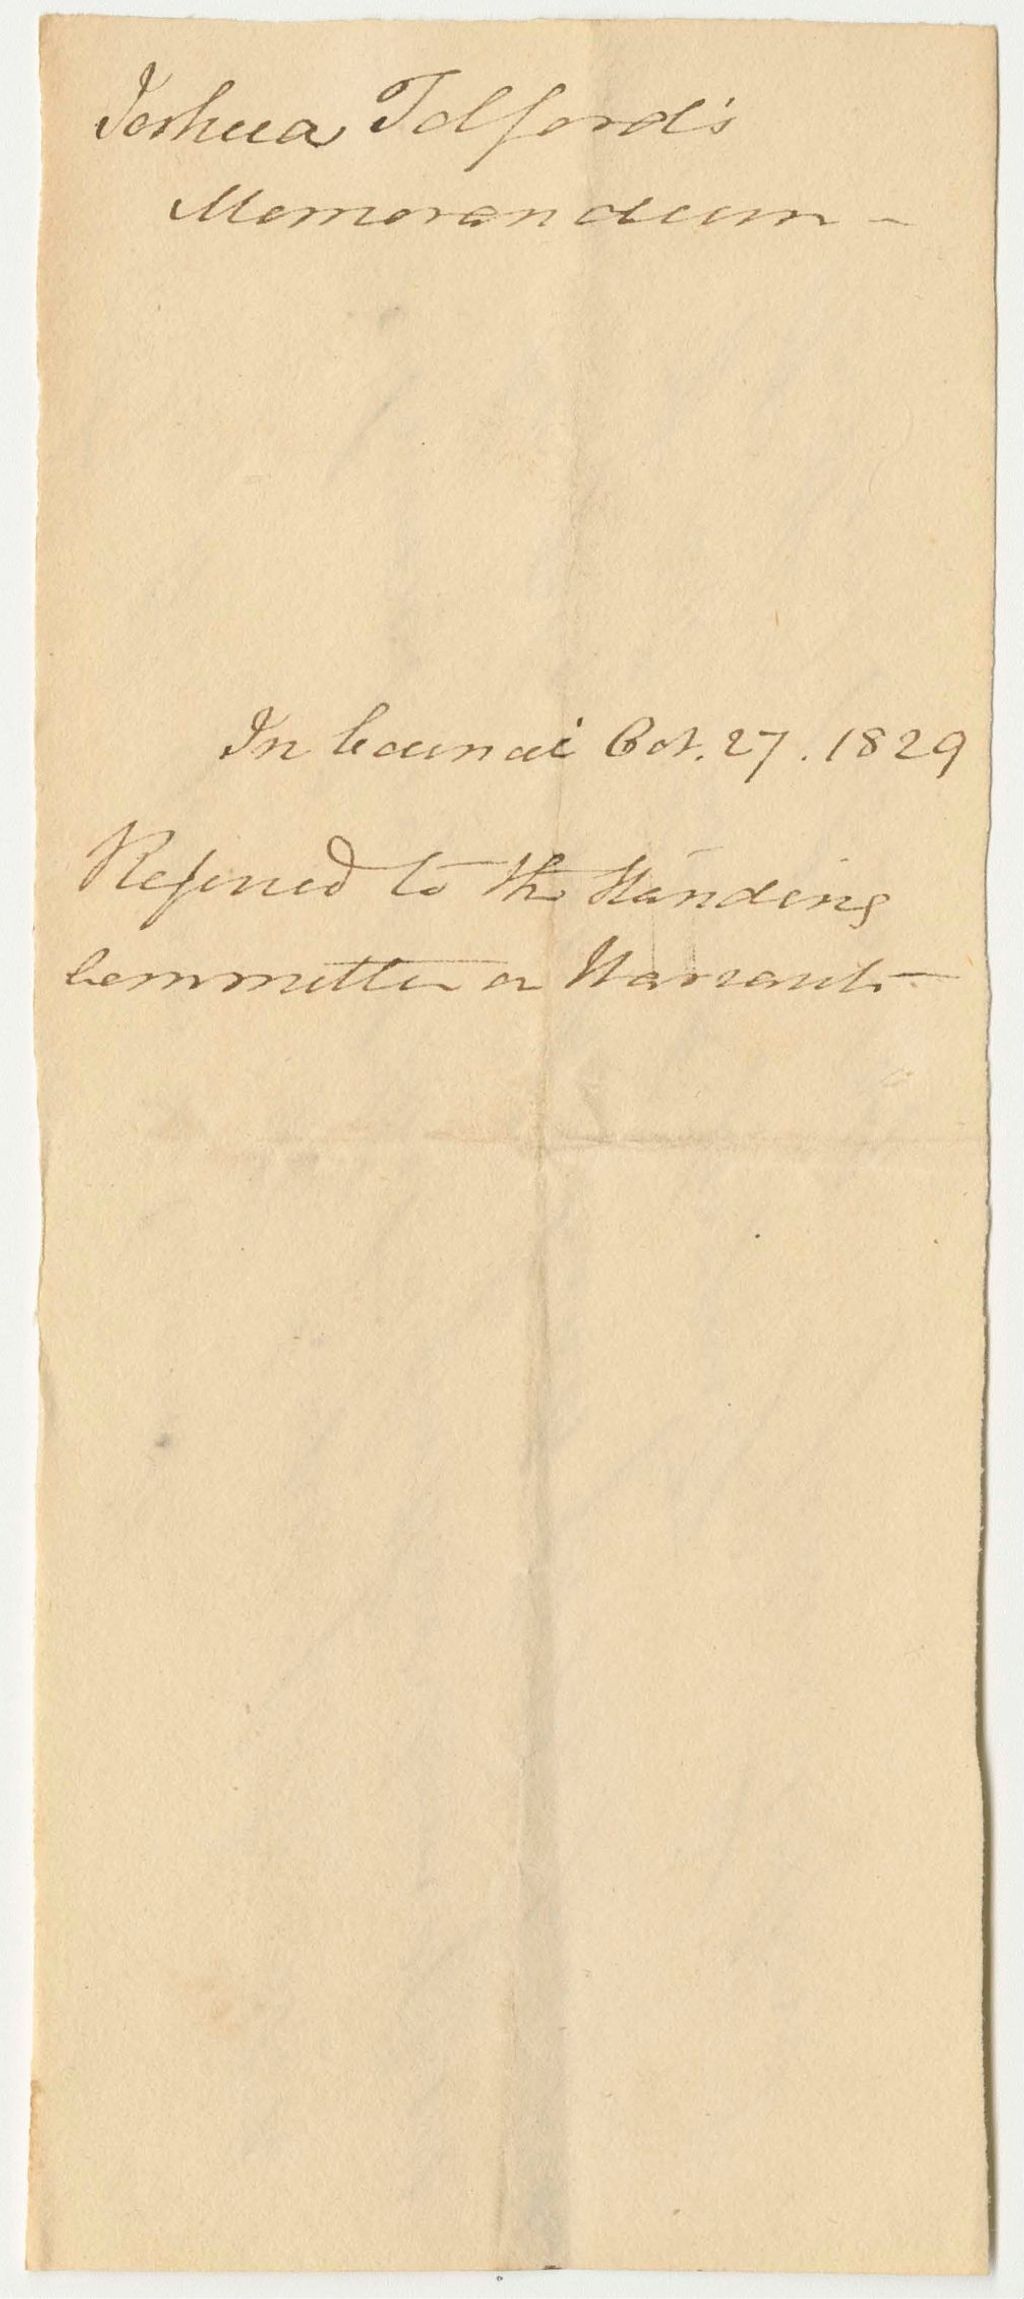 Joshua Tolford's
Memorandum –
In Council Oct. 27. 1829
Referred to the Standing
Committee on Warrants –